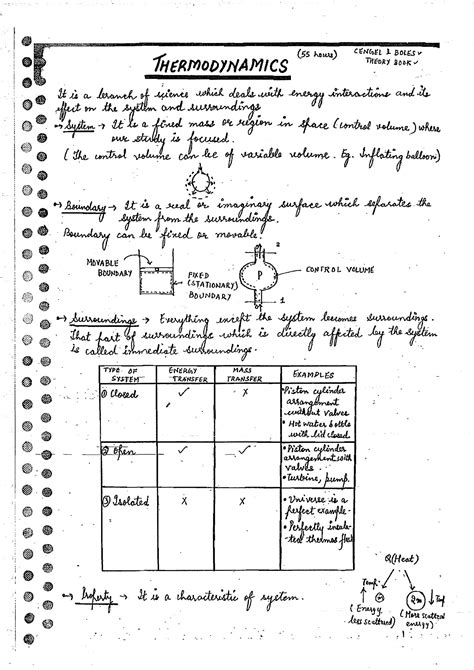 (55 hours)
CENGEL & BOLES ✓
THEORY BOOK ✓
THERMODYNAMICS
It is a branch of science which deals with energy interactions and its
effect on the system and surroundings
System → It is a fixed mass or region in space (control volume) where
our study is focused.
(The control volume can be of variable volume. Eg. Inflating balloon)
Boundary → It is a real or imaginary surface which separates the
system from the surroundings.
Boundary can be fixed or movable.
MOVABLE
BOUNDARY
FIXED
(STATIONARY)
BOUNDARY
2
P
1
CONTROL VOLUME
Surroundings → Everything except the system becomes surroundings.
That part of surroundings which is directly affected by the system
is called immediate surroundings.
TYPE OF SYSTEM | ENERGY TRANSFER | MASS TRANSFER | EXAMPLES
① Closed ✓ X • Piston cylinder
arrangement
without valves
• Hot water bottle
with lid closed
② Open ✓ ✓ • Piston cylinder
arrangement with
valves.
• Turbine, pump.
③ Isolated X X • Universe is a
perfect example.
• Perfectly insula-
ted thermos flask
Property → It is a characteristic of system.
Q(Heat)
Temp↑
(Energy
less scattered)
2m
↓Temp
(More scattered
energy)
1